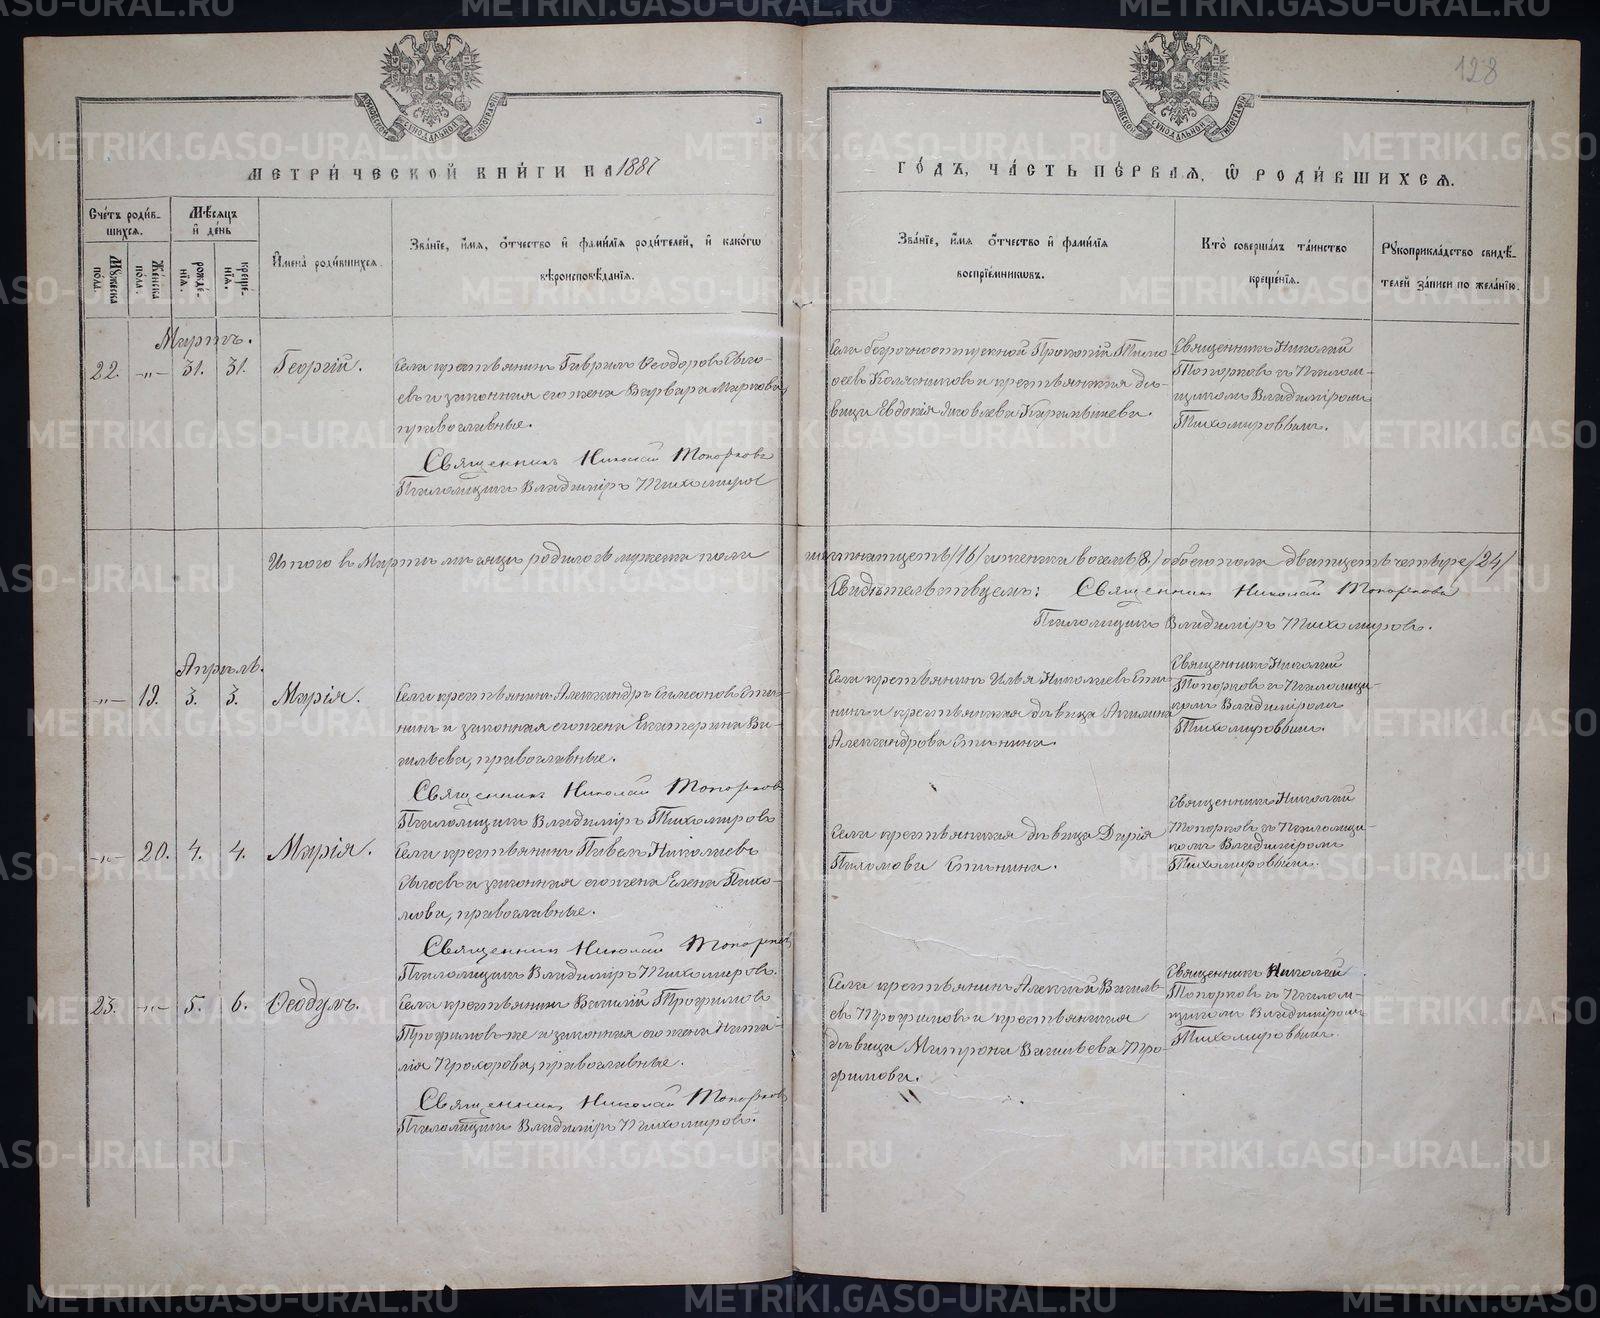 128
МОСКОВСКОЙ СѴНОДАЛЬНОЙ ТИПОГРАФІИ
МОСКОВСКОЙ СѴНОДАЛЬНОЙ ТИПОГРАФІИ
МЕТРИ́ЧЕСКОЙ КНИ́ГИ НА 1887
ГО́ДЪ, ЧА́СТЬ ПЕ́РВАѦ, Ѡ РОДИ́ВШИХСѦ.
Сче́тъ роди́в-
шихсѧ.
Мужеска
пола.
Женска
пола.
Мѣсѧцъ
и де́нь
рожде́-
нїѧ.
креще́-
нїѧ.
И́мена роди́вшихсѧ.
Зва́нїе, и́мѧ, о́тчество и фами́лїѧ роди́телей, и како́гѡ
вѣроисповѣ́данїѧ.
Зва́нїе, и́мѧ о́тчество и фами́лїѧ
воспрїе́мникѡвъ.
Кто̀ соверша́лъ та́инство
креще́нїѧ.
Рꙋкоприкла́дство свидѣ́-
телей за́писи по жела́нїю.
Мартъ.
22. -„- 31. 31. Георгій.
Села крестьянинъ Гавріилъ Ѳеодоровъ
и законная его жена Варвара Маркова,
православные.
Священникъ Николай Топорковъ
Псаломщикъ Владиміръ Тихомировъ
Села Прокопій Тимо
ѳеевъ и крестьянская дѣ-
вица Евдокія Яковлева
Священникъ Николай
Топорковъ съ Псалом-
щикомъ Владиміромъ
Тихомировымъ.
Итого въ Мартѣ мѣсяцѣ родилось мужеска пола
шестнатцеть /16/ и женска восемь 8./ обоего пола двадцеть четыре /24/
Свидѣтельствуемъ: Священникъ Николай Топорковъ
Псаломщикъ Владиміръ Тихомировъ.
Апрѣль.
-„- 19. 3. 3. Марія.
Села крестьянинъ Александръ Симеоновъ Стъ-
нинъ и законная его жена Екатерина Ва-
сильева, православные.
Священникъ Николай Топорковъ
Псаломщикъ Владиміръ Тихомировъ
Села крестьянинъ Илья Николаевъ
и крестьянская дѣвица Акилина
Александрова
Священникъ Николай
Топорковъ съ Псаломщи-
комъ Владиміромъ
Тихомировымъ.
-„- 20. 4. 4. Марія.
Села крестьянинъ Павелъ Николаевъ
и законная его жена Елена Пахо-
мова, православные.
Священникъ Николай Топорковъ
Псаломщикъ Владиміръ Тихомировъ.
Села крестьянская дѣвица Дарія
Пахомова
Священникъ Николай
Топорковъ съ Псаломщи-
комъ Владиміромъ
Тихомировымъ.
23. -„- 5. 6. Ѳеодулъ.
Села крестьянинъ Василій Трофимовъ
Трофимовъ же и законная его жена Ната-
лія Прохорова, православные.
Священникъ Николай Топорковъ
Псаломщикъ Владиміръ Тихомировъ.
Села крестьянинъ Алексѣй Василь-
евъ Трофимовъ и крестьянская
дѣвица Матрона Васильева Тро-
фимова.
Священникъ Николай
Топорковъ съ Псалом-
щикомъ Владиміромъ
Тихомировымъ.
METRIKI.GASO-URAL.RU